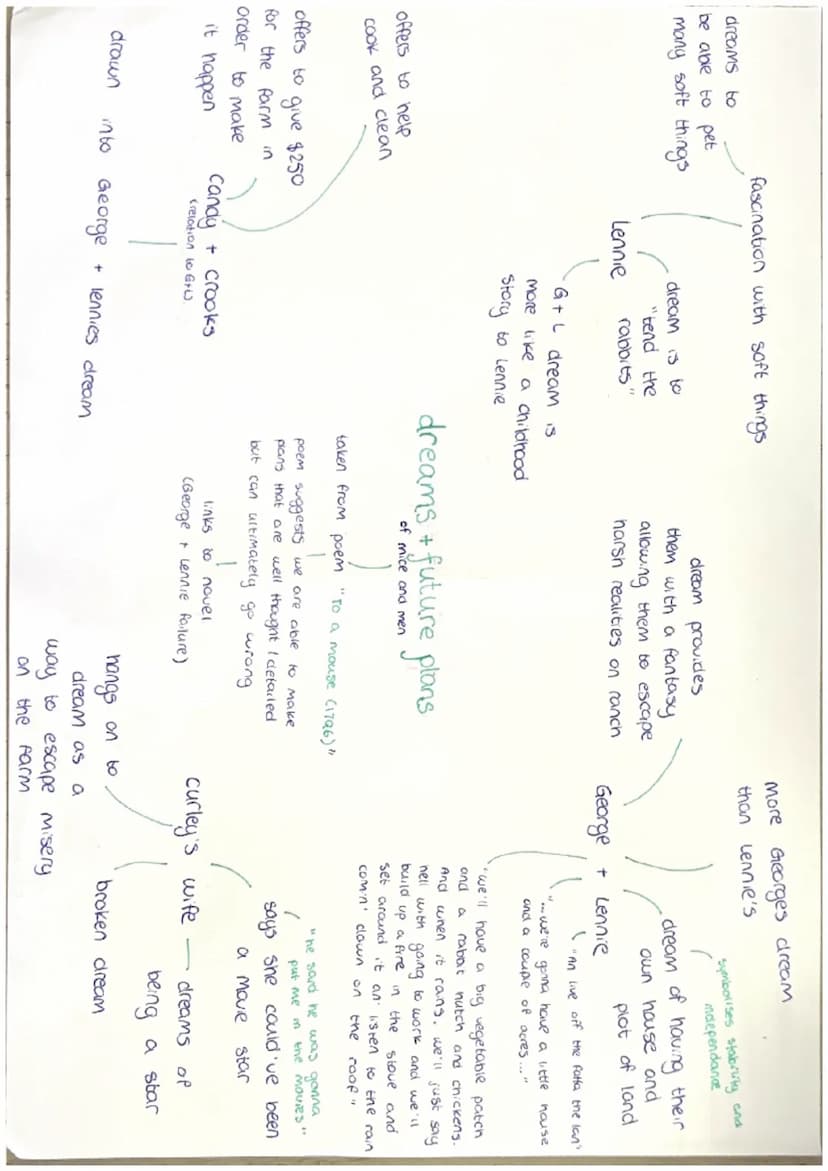 dreams + future plans
of mice and men
taken from poem "To a mouse (1786)"
poem suggests we are able to make
plans that are well thought / detailed
but can ultimately go wrong
links to novel
(George + Lennie failure)
Lennie
fascination with soft things
dreams to
be able to pet
many soft things
dream is to
"tend the
rabbits"
G + L dream is
more like a childhood
story to Lennie
George + Lennie
dream provides
them with a fantasy
allowing them to escape
harsh realities on ranch
More Georges dream
than Lennie's
dream of having their
own house and
plot of land
symbolises stability and
independance
"An live off the fatta the lan'
"...we're gonna have a little house
and a couple of acres..."
"we'll have a big vegetable patch
and a rabbit hutch and chickens.
And when it rains, we'll just say
hell with going to work and we'll
build up a fire in the stove and
set around it an' listen to the rain
comin' down on the roof"
Candy + Crooks
(relation to G+L)
offers to help
cook and clean
offers to give $250
for the farm in
order to make
it happen
drawn into George + Lennies dream
Curley's wife
dreams of
being a star
says she could've been
a movie star
"he said he was gonna
put me in the movies"
broken dream
hangs on to
dream as a
way to escape misery
on the farm